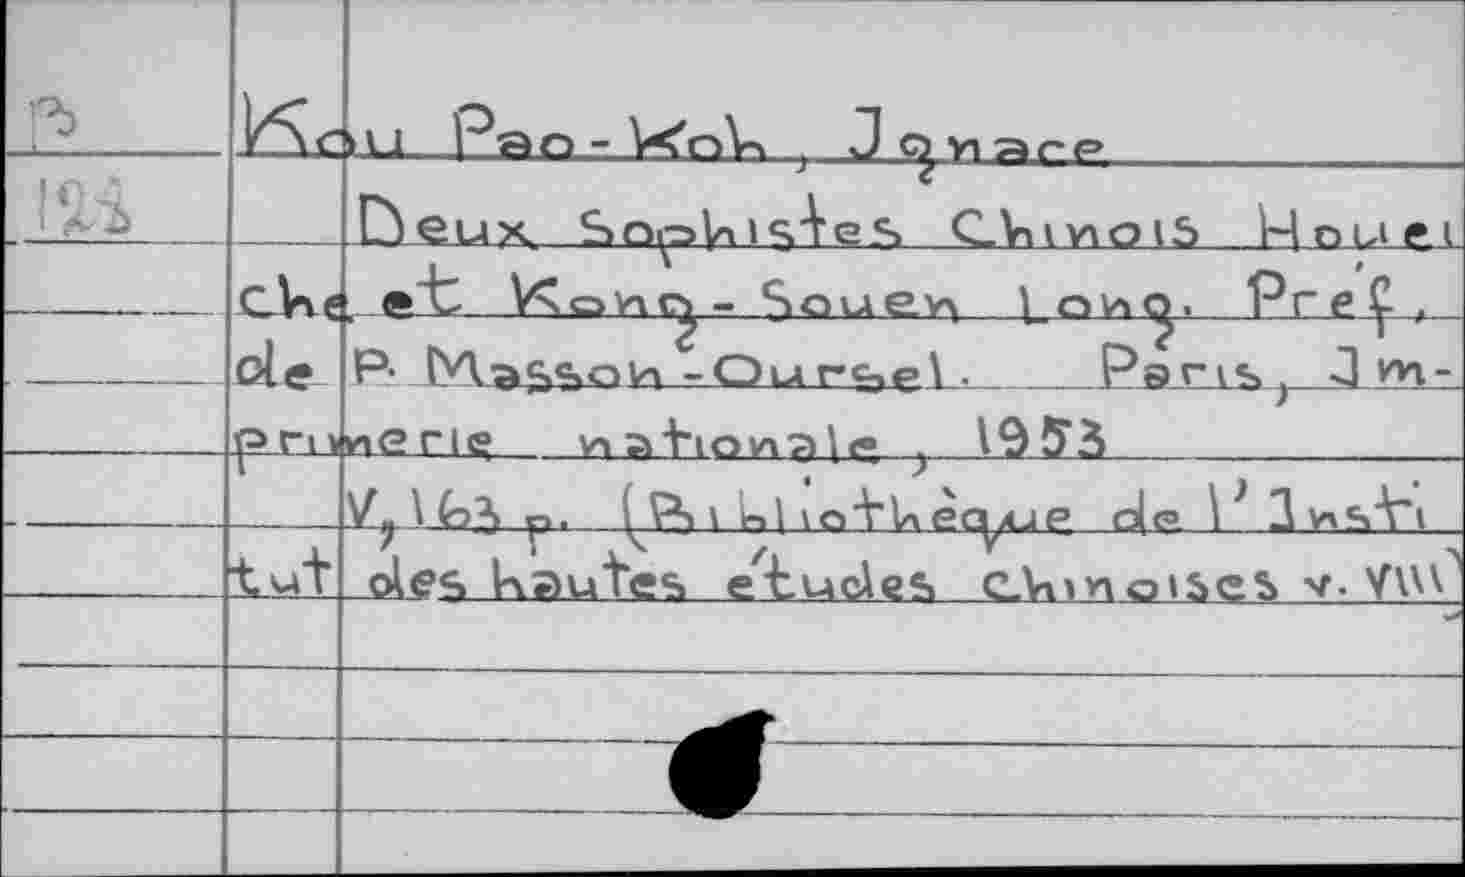 B Kou Pao-Koh, Ignace
121 Deux Sophistes Chinois Houei
che et Kong-Souen Long. Préf,
de P. Masson-Oursel. Paris, Im-
primerie nationale, 1953
V, 163 p. (Bibliothèque de l'Insti
tut des hautes études chinoises v. VIII)